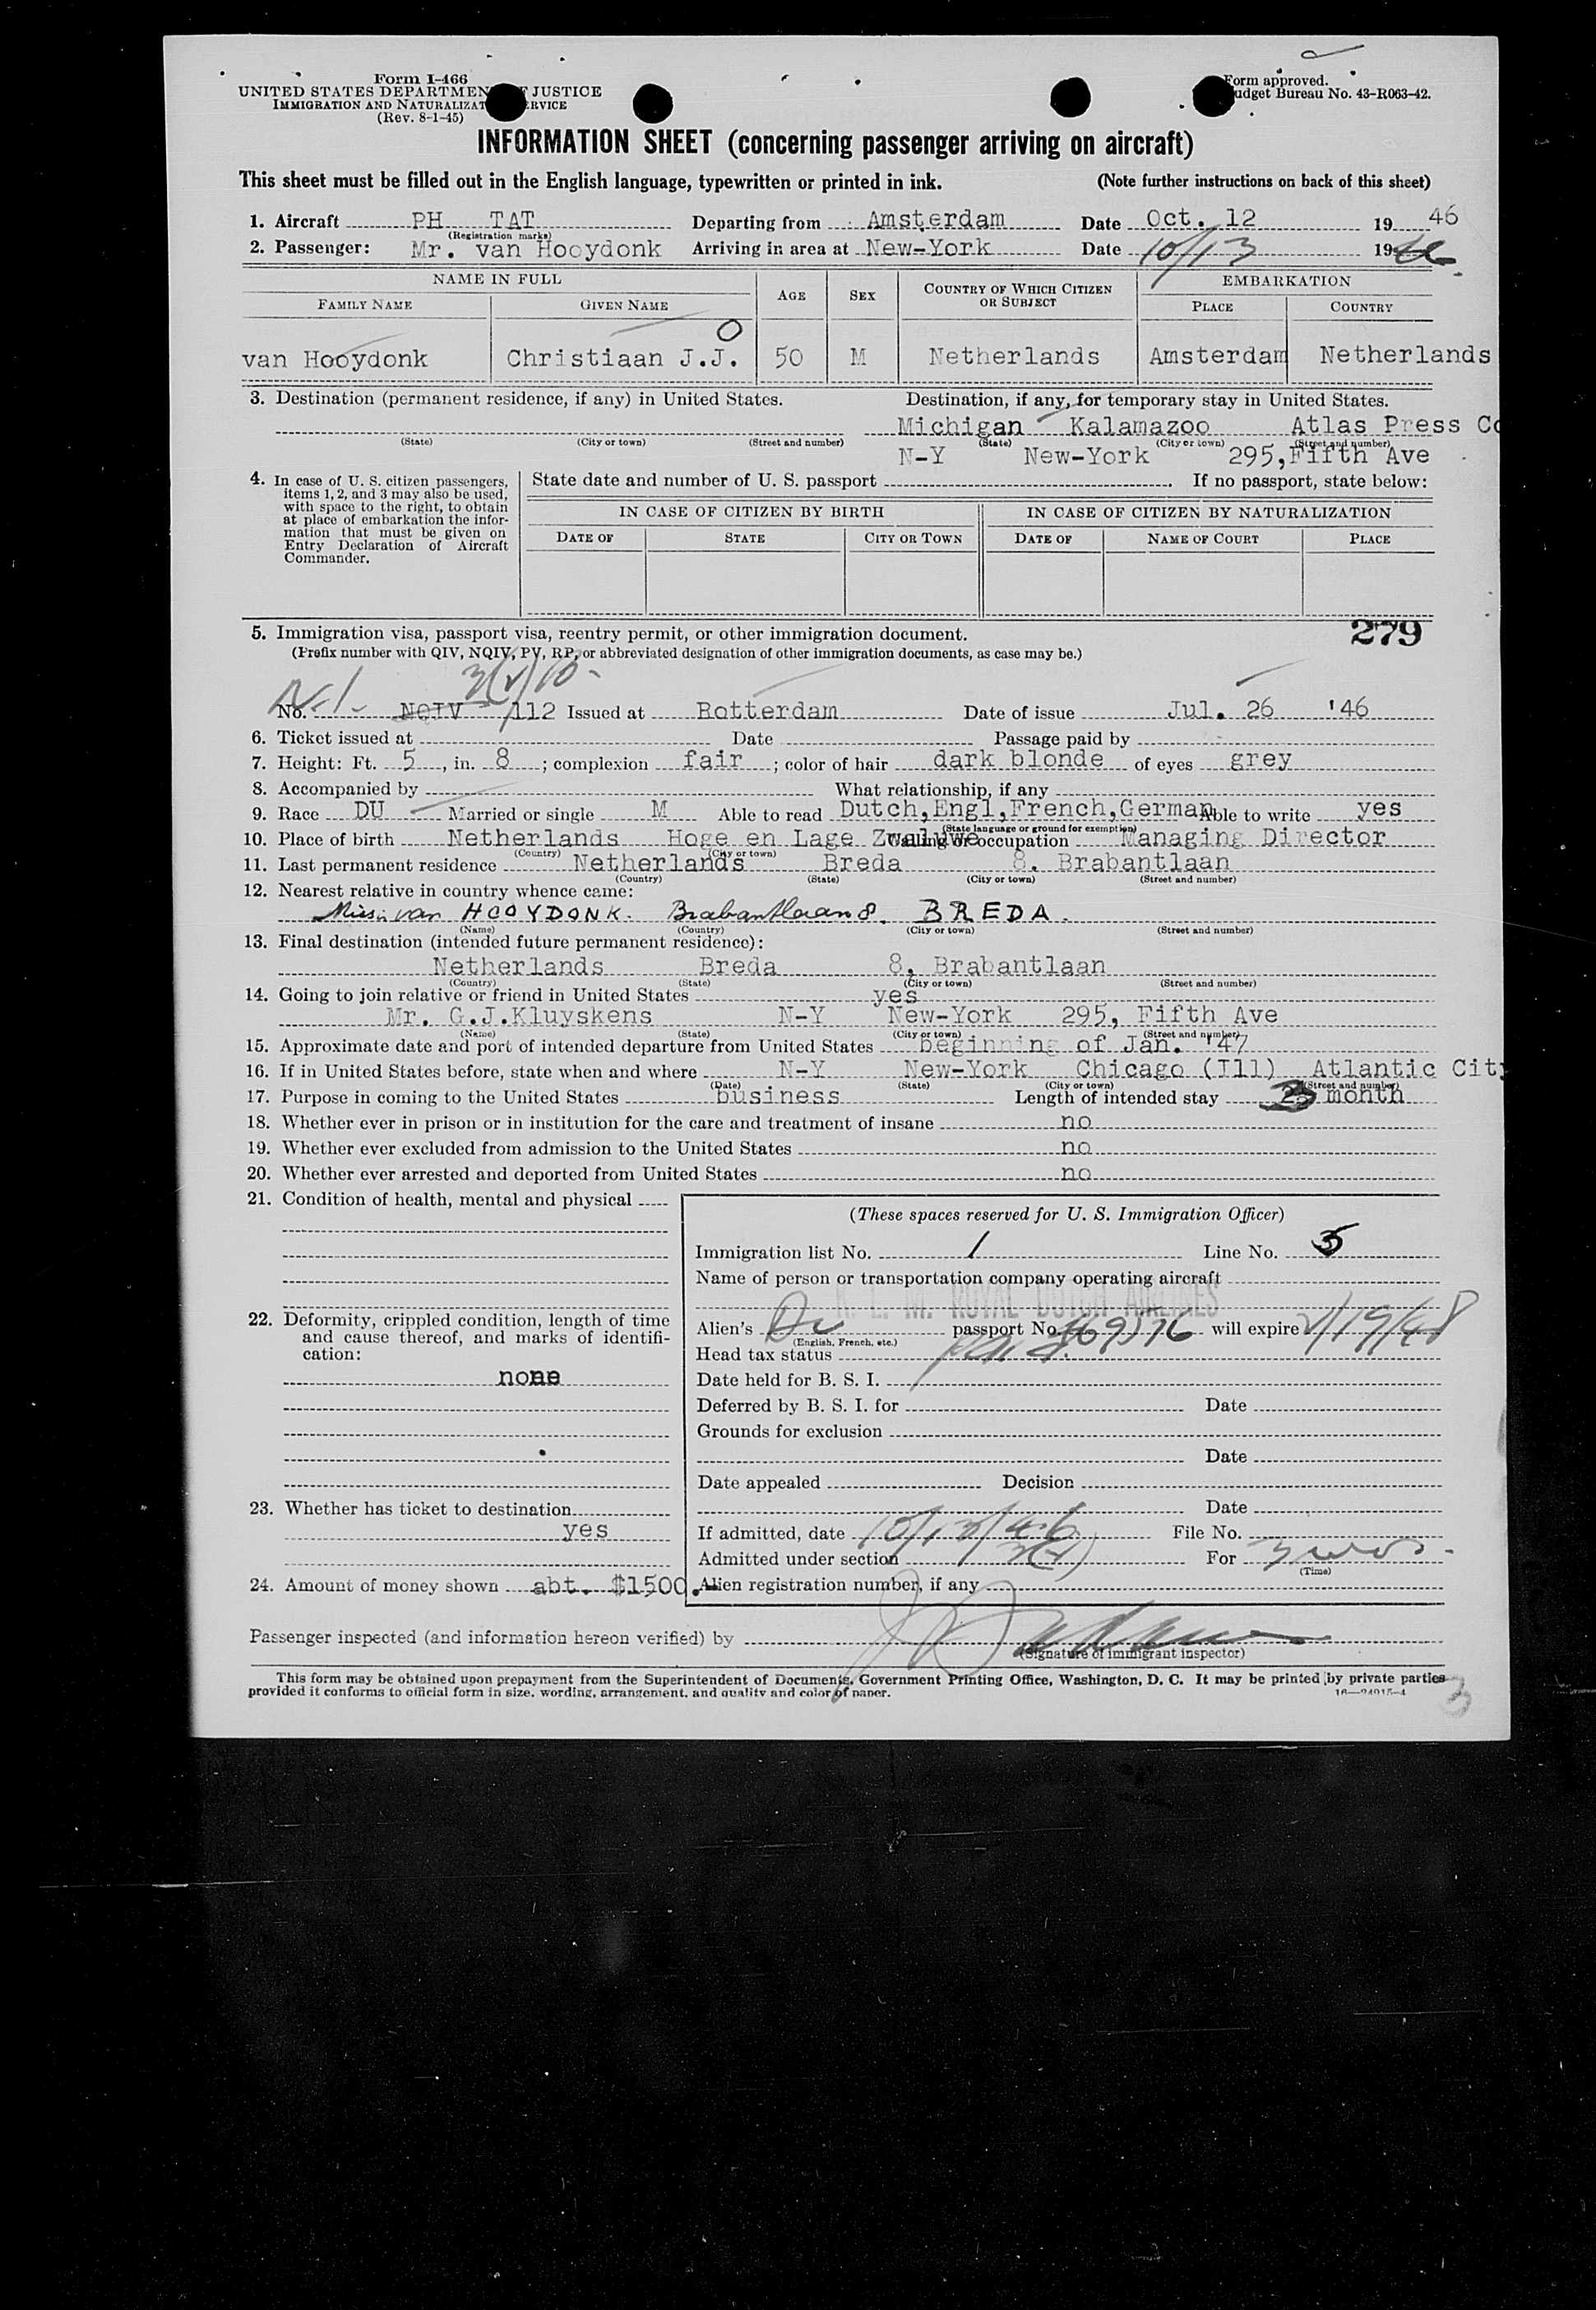 Form I-466
UNITED STATES DEPARTMEN JUSTICE
IMMIGRATION AND NATURALIZAT RVICE
(Rev. 8-1-45)
Form approved.
udget Bureau No. 43-R063-42.
INFORMATION SHEET (concerning passenger arriving on aircraft)
This sheet must be filled out in the English language, typewritten or printed in ink. (Note further instructions on back of this sheet)
1. Aircraft PH TAT Departing from Amsterdam Date Oct. 12 19 46
(Registration marks)
2. Passenger: Mr. van Hooydonk Arriving in area at New-York Date 10/13 19 46
NAME IN FULL AGE SEX COUNTRY OF WHICH CITIZEN OR SUBJECT EMBARKATION
FAMILY NAME GIVEN NAME PLACE COUNTRY
van Hooydonk Christiaan J.J. O 50 M Netherlands Amsterdam Netherlands
3. Destination (permanent residence, if any) in United States. Destination, if any, for temporary stay in United States.
Michigan Kalamazoo Atlas Press Co
(State) (City or town) (Street and number) (State) (City or town) (Street and number)
N-Y New-York 295,Fifth Ave
4. In case of U. S. citizen passengers, items 1, 2, and 3 may also be used, with space to the right, to obtain at place of embarkation the information that must be given on Entry Declaration of Aircraft Commander.
State date and number of U. S. passport If no passport, state below:
IN CASE OF CITIZEN BY BIRTH IN CASE OF CITIZEN BY NATURALIZATION
DATE OF STATE CITY OR TOWN DATE OF NAME OF COURT PLACE
279
5. Immigration visa, passport visa, reentry permit, or other immigration document.
(Prefix number with QIV, NQIV, PV, RP, or abbreviated designation of other immigration documents, as case may be.)
3(2)10-
No. NQIV 112 Issued at Rotterdam Date of issue Jul. 26 '46
6. Ticket issued at Date Passage paid by
7. Height: Ft. 5, in. 8; complexion fair; color of hair dark blonde of eyes grey
8. Accompanied by What relationship, if any
9. Race DU Married or single M Able to read Dutch,Engl,French,German Able to write yes
(State language or ground for exemption)
10. Place of birth Netherlands Hoge en Lage Zwaluwe Calling or occupation Managing Director
(Country) (City or town)
11. Last permanent residence Netherlands Breda 8. Brabantlaan
(Country) (State) (City or town) (Street and number)
12. Nearest relative in country whence came:
van HOOYDONK. Brabantlaan 8. BREDA.
(Name) (Country) (City or town) (Street and number)
13. Final destination (intended future permanent residence):
Netherlands Breda 8, Brabantlaan
(Country) (State) (City or town) (Street and number)
14. Going to join relative or friend in United States yes
Mr. G.J.Kluyskens N-Y New-York 295, Fifth Ave
(Name) (State) (City or town) (Street and number)
15. Approximate date and port of intended departure from United States beginning of Jan. '47
16. If in United States before, state when and where N-Y New-York Chicago (Ill) Atlantic City
(Date) (State) (City or town) (Street and number)
17. Purpose in coming to the United States business Length of intended stay 3 month
18. Whether ever in prison or in institution for the care and treatment of insane no
19. Whether ever excluded from admission to the United States no
20. Whether ever arrested and deported from United States no
21. Condition of health, mental and physical
(These spaces reserved for U. S. Immigration Officer)
Immigration list No. 1 Line No. 5
Name of person or transportation company operating aircraft
K. L. M. ROYAL DUTCH AIRLINES
22. Deformity, crippled condition, length of time and cause thereof, and marks of identification:
none
Alien's Du passport No. will expire 2/19/48
(English, French, etc.)
Head tax status
Date held for B. S. I.
Deferred by B. S. I. for Date
Grounds for exclusion
Date
Date appealed Decision
Date
23. Whether has ticket to destination
yes
If admitted, date 10/13/46 File No.
Admitted under section 3(2) For 3 mos.
(Time)
24. Amount of money shown abt. $1500.- Alien registration number, if any
Passenger inspected (and information hereon verified) by
(Signature of immigrant inspector)
This form may be obtained upon prepayment from the Superintendent of Documents, Government Printing Office, Washington, D. C. It may be printed by private parties
provided it conforms to official form in size, wording, arrangement, and quality and color of paper. 16—24915-4
3